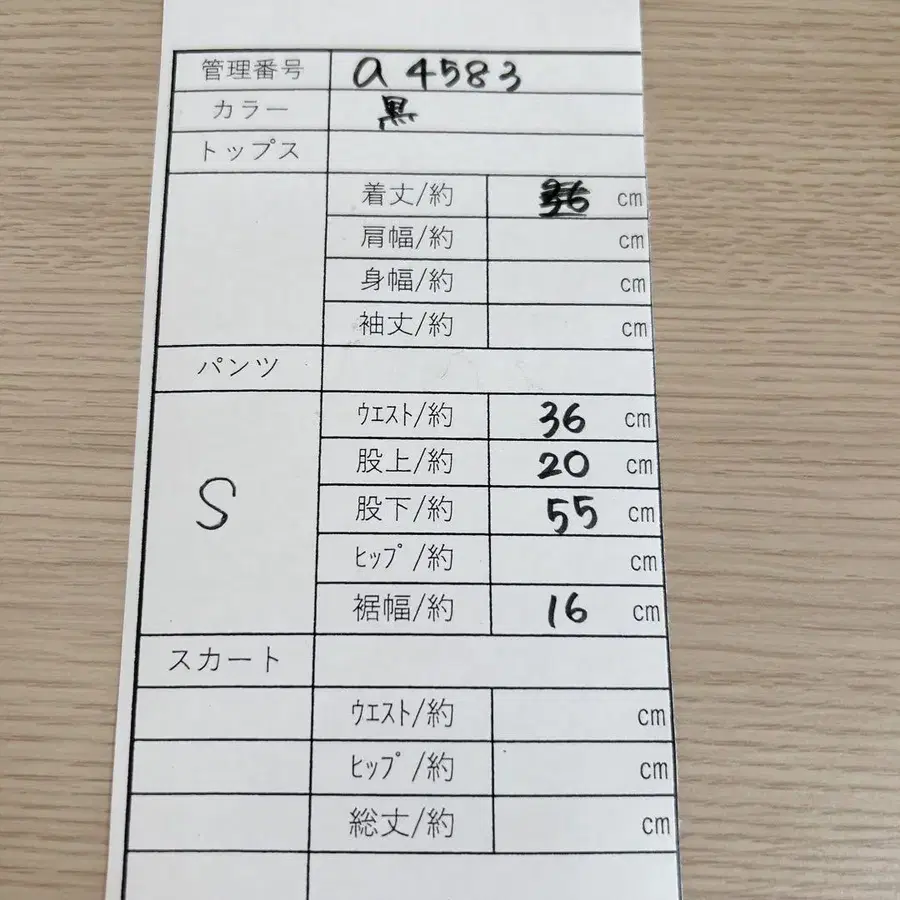 管理番号 a 4583
カラー 黒
トップス
着丈/約 cm
肩幅/約 cm
身幅/約 cm
袖丈/約 cm
パンツ
S
ウエスト/約 36 cm
股上/約 20 cm
股下/約 55 cm
ヒップ/約 cm
裾幅/約 16 cm
スカート
ウエスト/約 cm
ヒップ/約 cm
総丈/約 cm